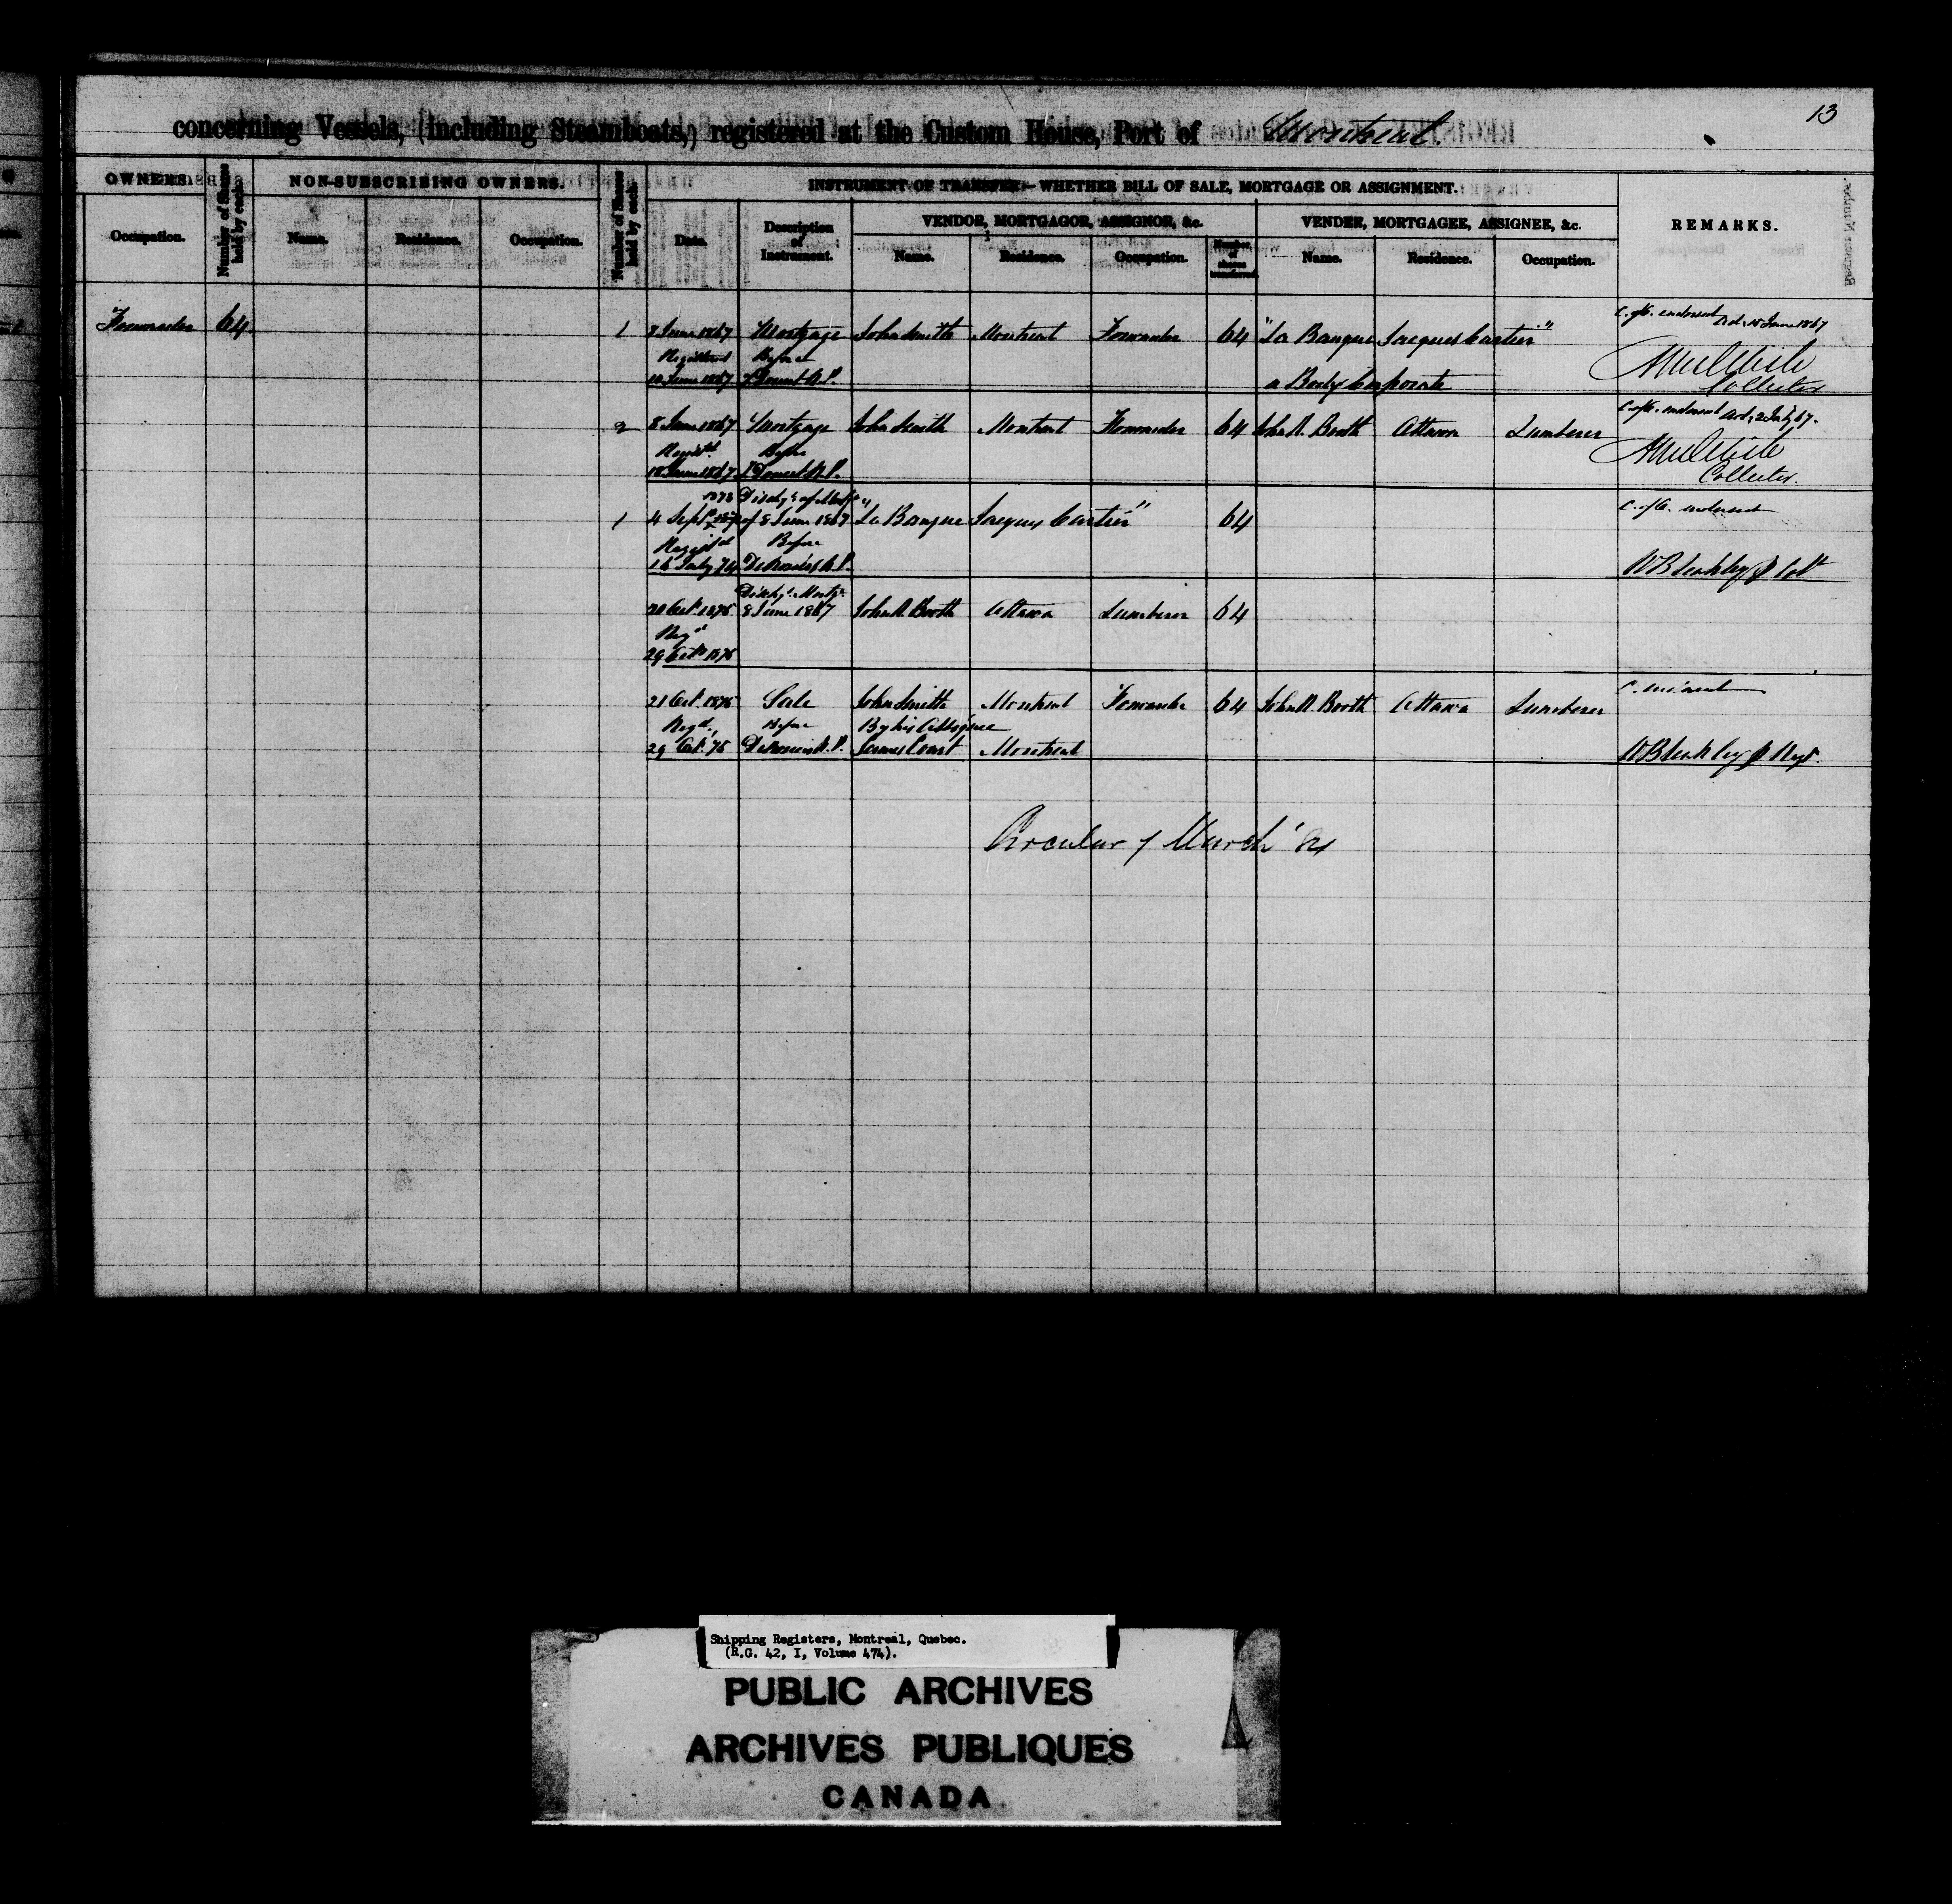 13
concerning Vessels, (including Steamboats,) registered at the Custom House, Port of Montreal.
OWNERS.
NON-SUBSCRIBING OWNERS.
INSTRUMENT OF TRANSFER:—WHETHER BILL OF SALE, MORTGAGE OR ASSIGNMENT.
REMARKS.
VENDOR, MORTGAGOR, ASSIGNOR, &c.
VENDEE, MORTGAGEE, ASSIGNEE, &c.
Occupation.
Number of Shares held by each.
Name.
Residence.
Occupation.
Number of Shares held by each.
Date.
Description of Instrument.
Name.
Residence.
Occupation.
Number of shares transferred.
Name.
Residence.
Occupation.
C. of O. endorsed Ad. 15 June 1867
Forwarder 64 1 8 June 1867 Mortgage John Smith Montreal Forwarder 64 "La Banque Jacques Cartier"
Registered Before
10 June 1867 Doucet N.P. a Body Corporate
Collector
C. of O. endorsed Ad. 2 July 67.
2 8 June 1867 Mortgage John Smith Montreal Forwarder 64 John R. Booth Ottawa Lumberer
Regist'd Before
18 June 1867 Doucet N.P.
Collector.
1873 Disch'g of Mortg
1 4 Sept of 8 June 1867 "La Banque Jacques Cartier" 64
C. of O. endorsed
Regist'd Before
16 July 74 N.P.
W B Leakley Col
Disch'g Mortg.
20 Oct. 1875 8 June 1867 John R. Booth Ottawa Lumberer 64
Reg'd
29 Oct 1875
21 Oct. 1875 Sale John Smith Montreal Forwarder 64 John R. Booth Ottawa Lumberer
Reg'd Before By his Assignee
29 Oct. 75 N.P. James Court Montreal
Circular of March
Shipping Registers, Montreal, Quebec.
(R.G. 42, I, Volume 474).
PUBLIC ARCHIVES
ARCHIVES PUBLIQUES
CANADA